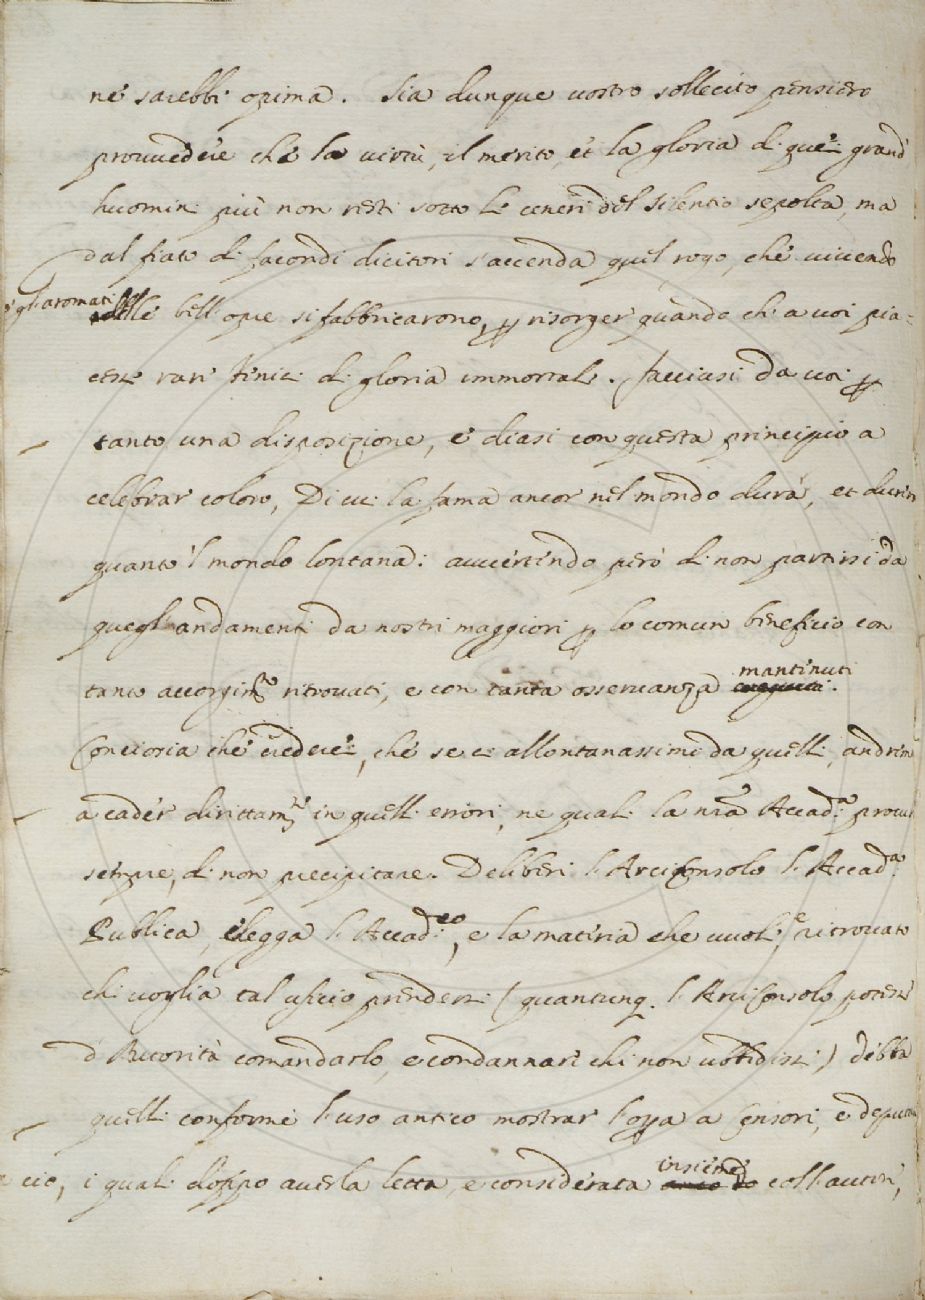 ne sarebbe opima. Sia dunque vostro sollecito pensiero
provvedere che la virtù, il merito, et la gloria di quei grand'
huomini più non resti sotto le ceneri del silentio sepolta, ma
dal fiato di facondi dicitori s'accenda quel rogo, che vivendo
gl'aromati delle bell'opre si fabbricarono, per risorger quando che a voi pia-
cesse rare Fenici di gloria immortale. Facciasi da voi per
tanto una disposizione, e diasi con questa principio a
celebrar coloro, Di cui la fama ancor nel mondo dura, et durerà
quanto 'l mondo lontana: avvertendo però di non partirsi da
quegl'andamenti da nostri maggiori per lo comun beneficio con
tanto accorgim.to ritrovati, e con tanta osservanza mantenuti.
Conciosia che crederei, che se ce allontanassimo da quelli, andrem
a cader dirittam.te in quelli errori, ne quali la nra Accad.a procurò
sempre, di non precipitare. Deliberi l'Arciconsolo l'Accad.a
Publica, elegga l'Accad.co, e la materia che vuole, e ritrovato
chi voglia tal uficio prendersi (quantunq. l'Arciconsolo potesse
d'Autorità comandarlo, e condannare chi non ubbidisse) debba
quelli conforme l'uso antico mostrar l'opa a Censori, e deputati
a ciò, i quali doppo averla letta, e considerata insieme coll'autore,